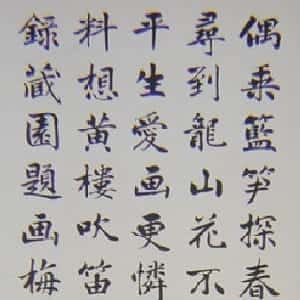 偶乘籃笋探春
尋到龍山花不
平生愛画更憐
料想黄樓吹笛
録藏園題画梅